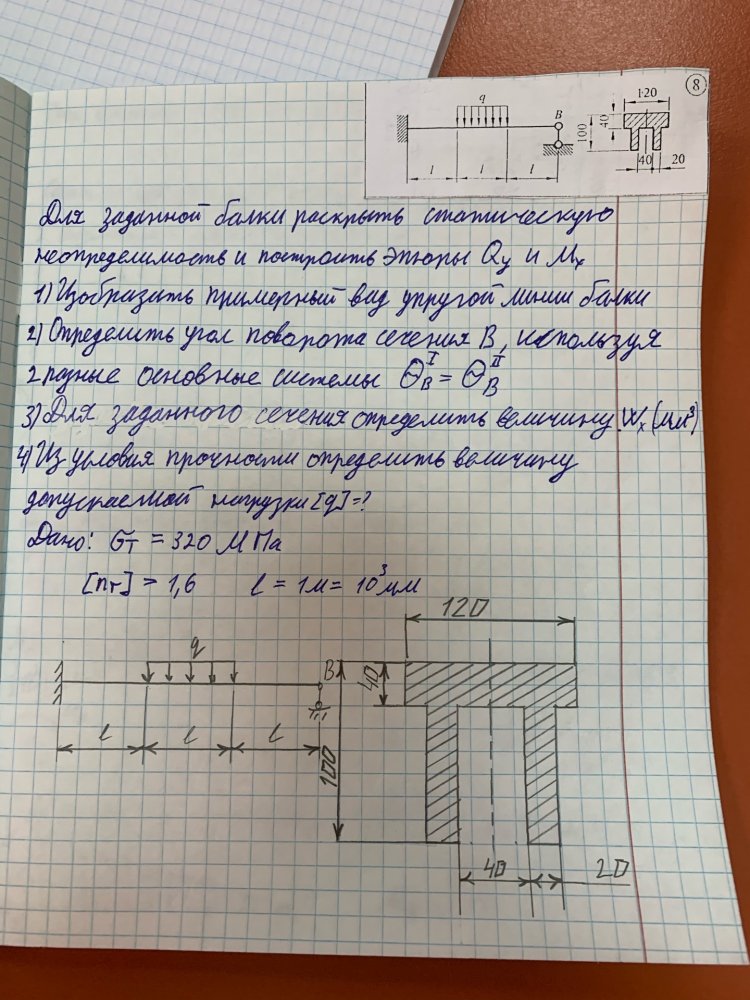 8
q
B
120
40
100
l
l
l
40
20
Для заданной балки раскрыть статическую
неопределимость и построить эпюры Qy и Mx
1) Изобразить примерный вид упругой линии балки
2) Определить угол поворота сечения B, используя
2 разные основные системы Θ_B^I = Θ_B^II
3) Для заданного сечения определить величину Wx (мм³)
4) Из условия прочности определить величину
допускаемой нагрузки [q]=?
Дано: σт = 320 МПа
[nт] = 1,6 l = 1м = 10³мм
120
q
B
40
l
l
l
100
40
20